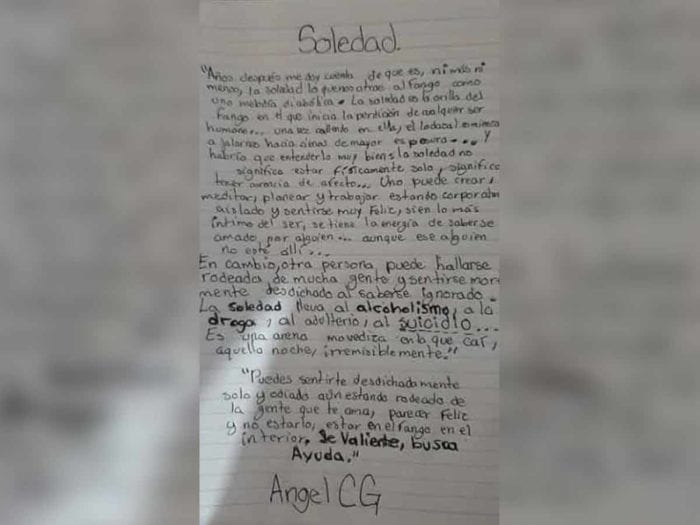 Soledad.
"Años después me doy cuenta de que es, ni más ni
menos, la soledad lo que nos atrae al fango como
una melodía diabólica. La soledad es la orilla del
fango en el que inicia la perdición de cualquier ser
humano... una vez callendo en ella, el lodazal comienza
a jalarnos hacia simas de mayor espesura... y
habría que entenderlo muy bien: la soledad no
significa estar físicamente solo, significa
tener carencia de afecto... Uno puede crear,
meditar, planear y trabajar estando corporalm
aislado y sentirse muy feliz, si en lo más
íntimo del ser, se tiene la energía de saberse
amado por alguien... aunque ese alguien
no esté allí...
En cambio, otra persona puede hallarse
rodeada de mucha gente y sentirse mor
mente desdichado al saberse ignorado.
La soledad lleva al alcoholismo, a la
droga, al adulterio, al suicidio...
Es una arena movediza en la que caí,
aquella noche, irremisiblemente."
"Puedes sentirte desdichadamente
solo y odiado aún estando rodeado de
la gente que te ama, parecer feliz
y no estarlo, estar en el fango en el
interior, Se Valiente, busca
Ayuda."
Angel CG